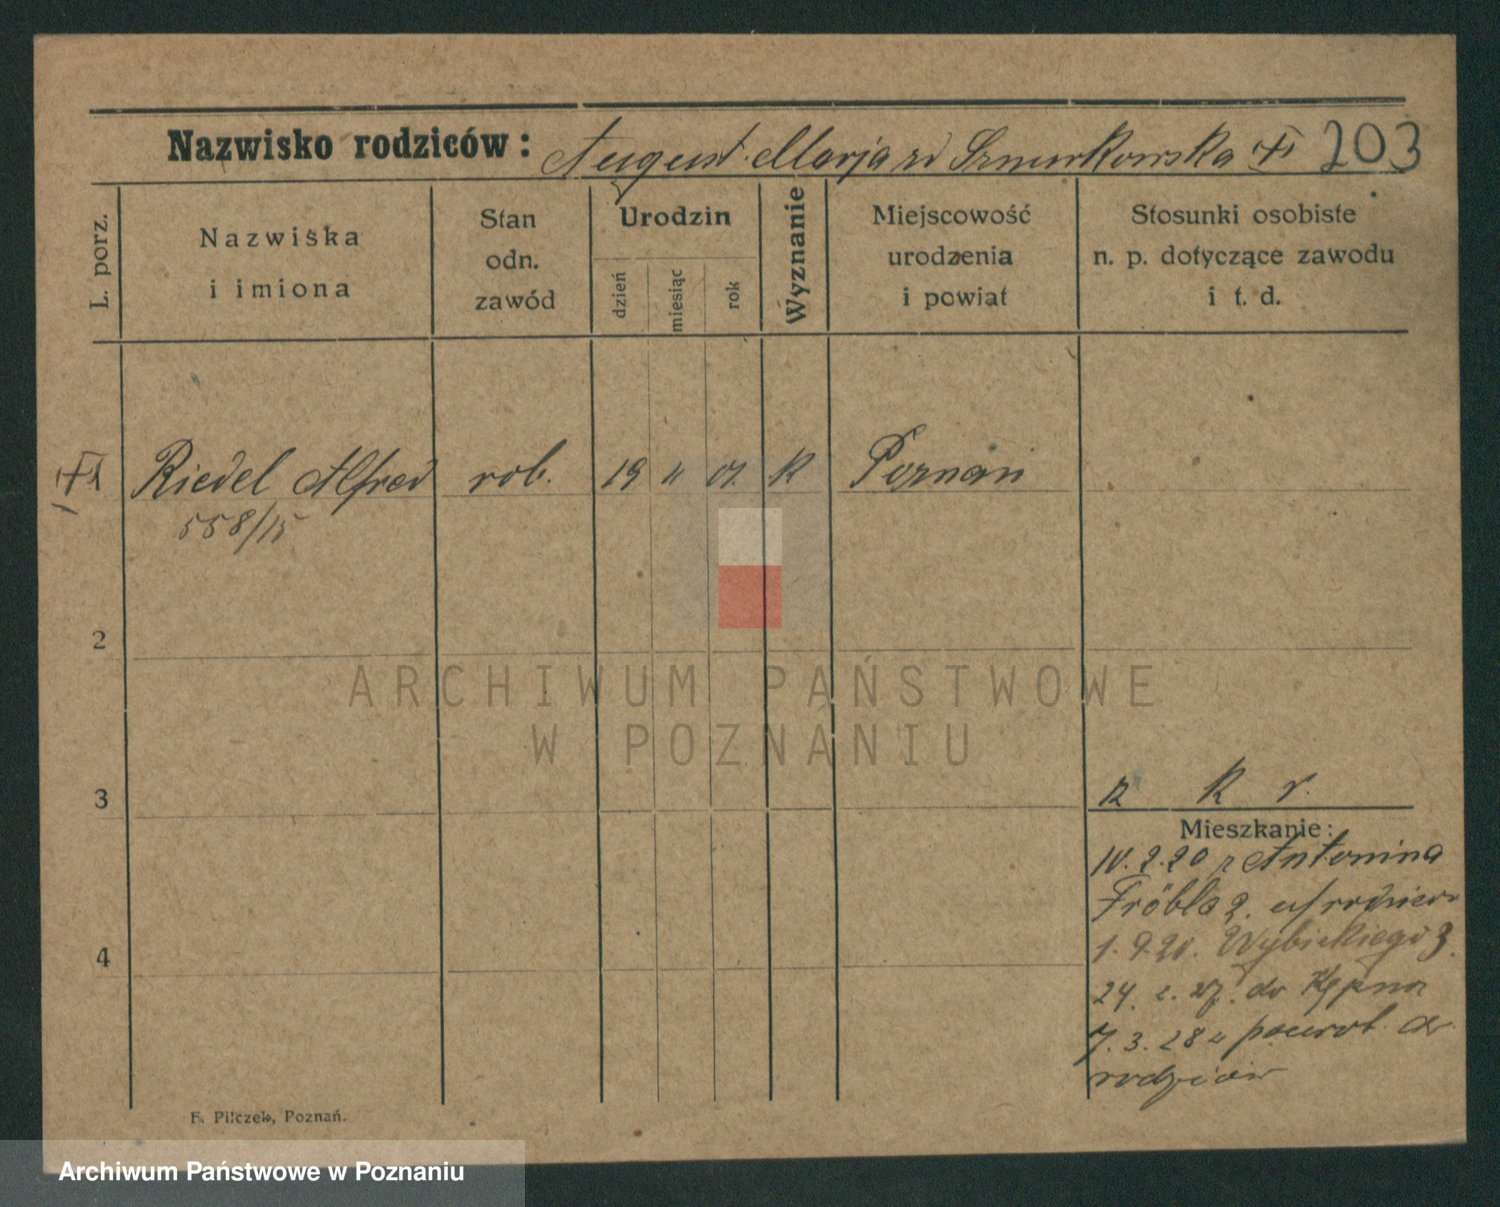 Nazwisko rodziców: August. Marja zd Szmurkowska 203
L. porz.
Nazwiska
i imiona
Stan
odn.
zawód
Urodzin
dzień
miesiąc
rok
Wyznanie
Miejscowość
urodzenia
i powiat
Stosunki osobiste
n. p. dotyczące zawodu
i t. d.
Riedel Alfred rob. 19 11 01. K Poznań
558/15
2
ARCHIWUM PAŃSTWOWE
W POZNANIU
3
k r.
Mieszkanie:
10.2.20 z Antonina
Fröbla 2. u/rodziców
1.9.20. Wybickiego 3.
24. 2. 27. do Kępna
7.3.28 powrot. do
rodziców
4
F. Pilczek, Poznań.
Archiwum Państwowe w Poznaniu